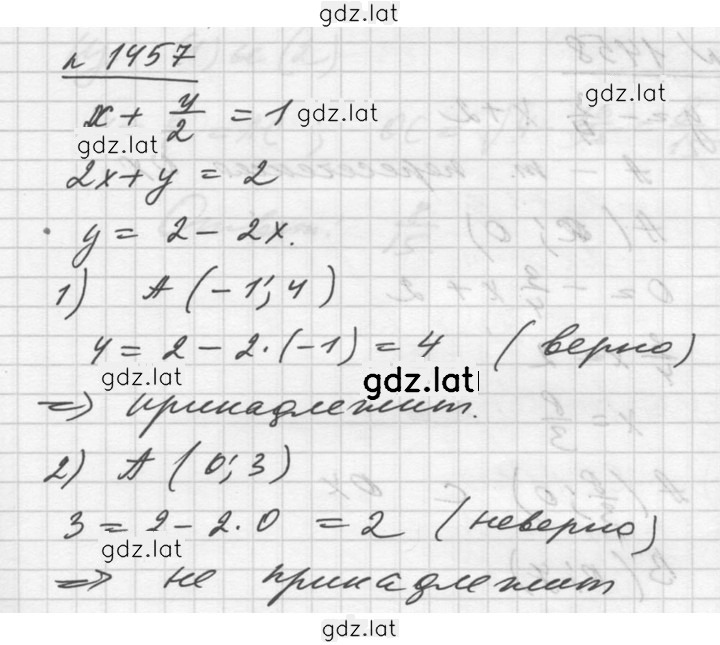 gdz.lat
n 1457
x + y/2 = 1 gdz.lat
gdz.lat
gdz.lat
2x+y = 2
y = 2 - 2x.
1) A (-1; 4)
4 = 2 - 2·(-1) = 4 (верно)
gdz.lat
gdz.lat
=> принадлежит.
2) A (0; 3)
3 = 2 - 2·0 = 2 (неверно)
gdz.lat
=> не принадлежит
gdz.lat